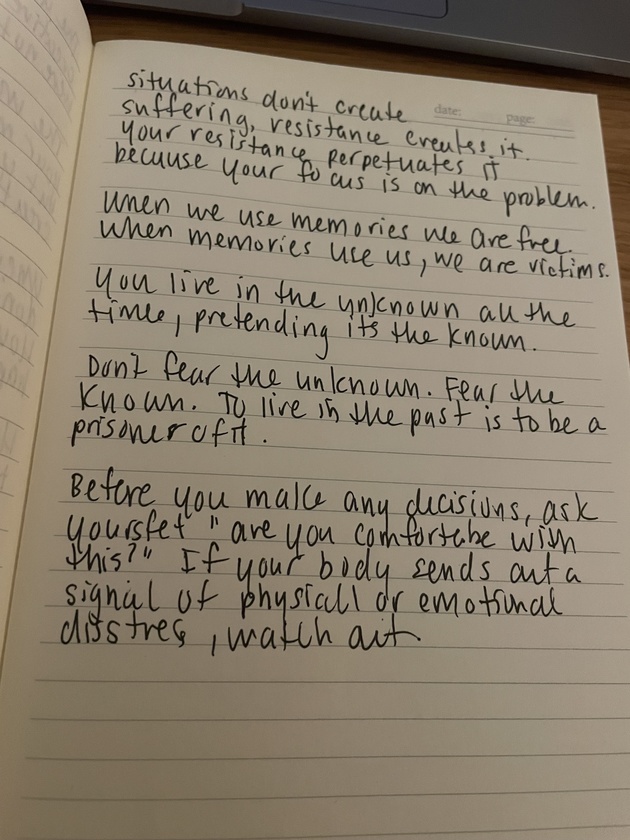 date: page:
situations don't create
suffering, resistance creates it.
your resistance perpetuates it
because your focus is on the problem.
When we use memories we are free.
When memories use us, we are victims.
You live in the unknown all the
time, pretending its the known.
Don't fear the unknown. Fear the
Known. To live in the past is to be a
prisoner of it.
Before you make any decisions, ask
yoursfet "are you comfortabe with
this?" If your body sends out a
signal of physicall or emotional
disstres, watch out.